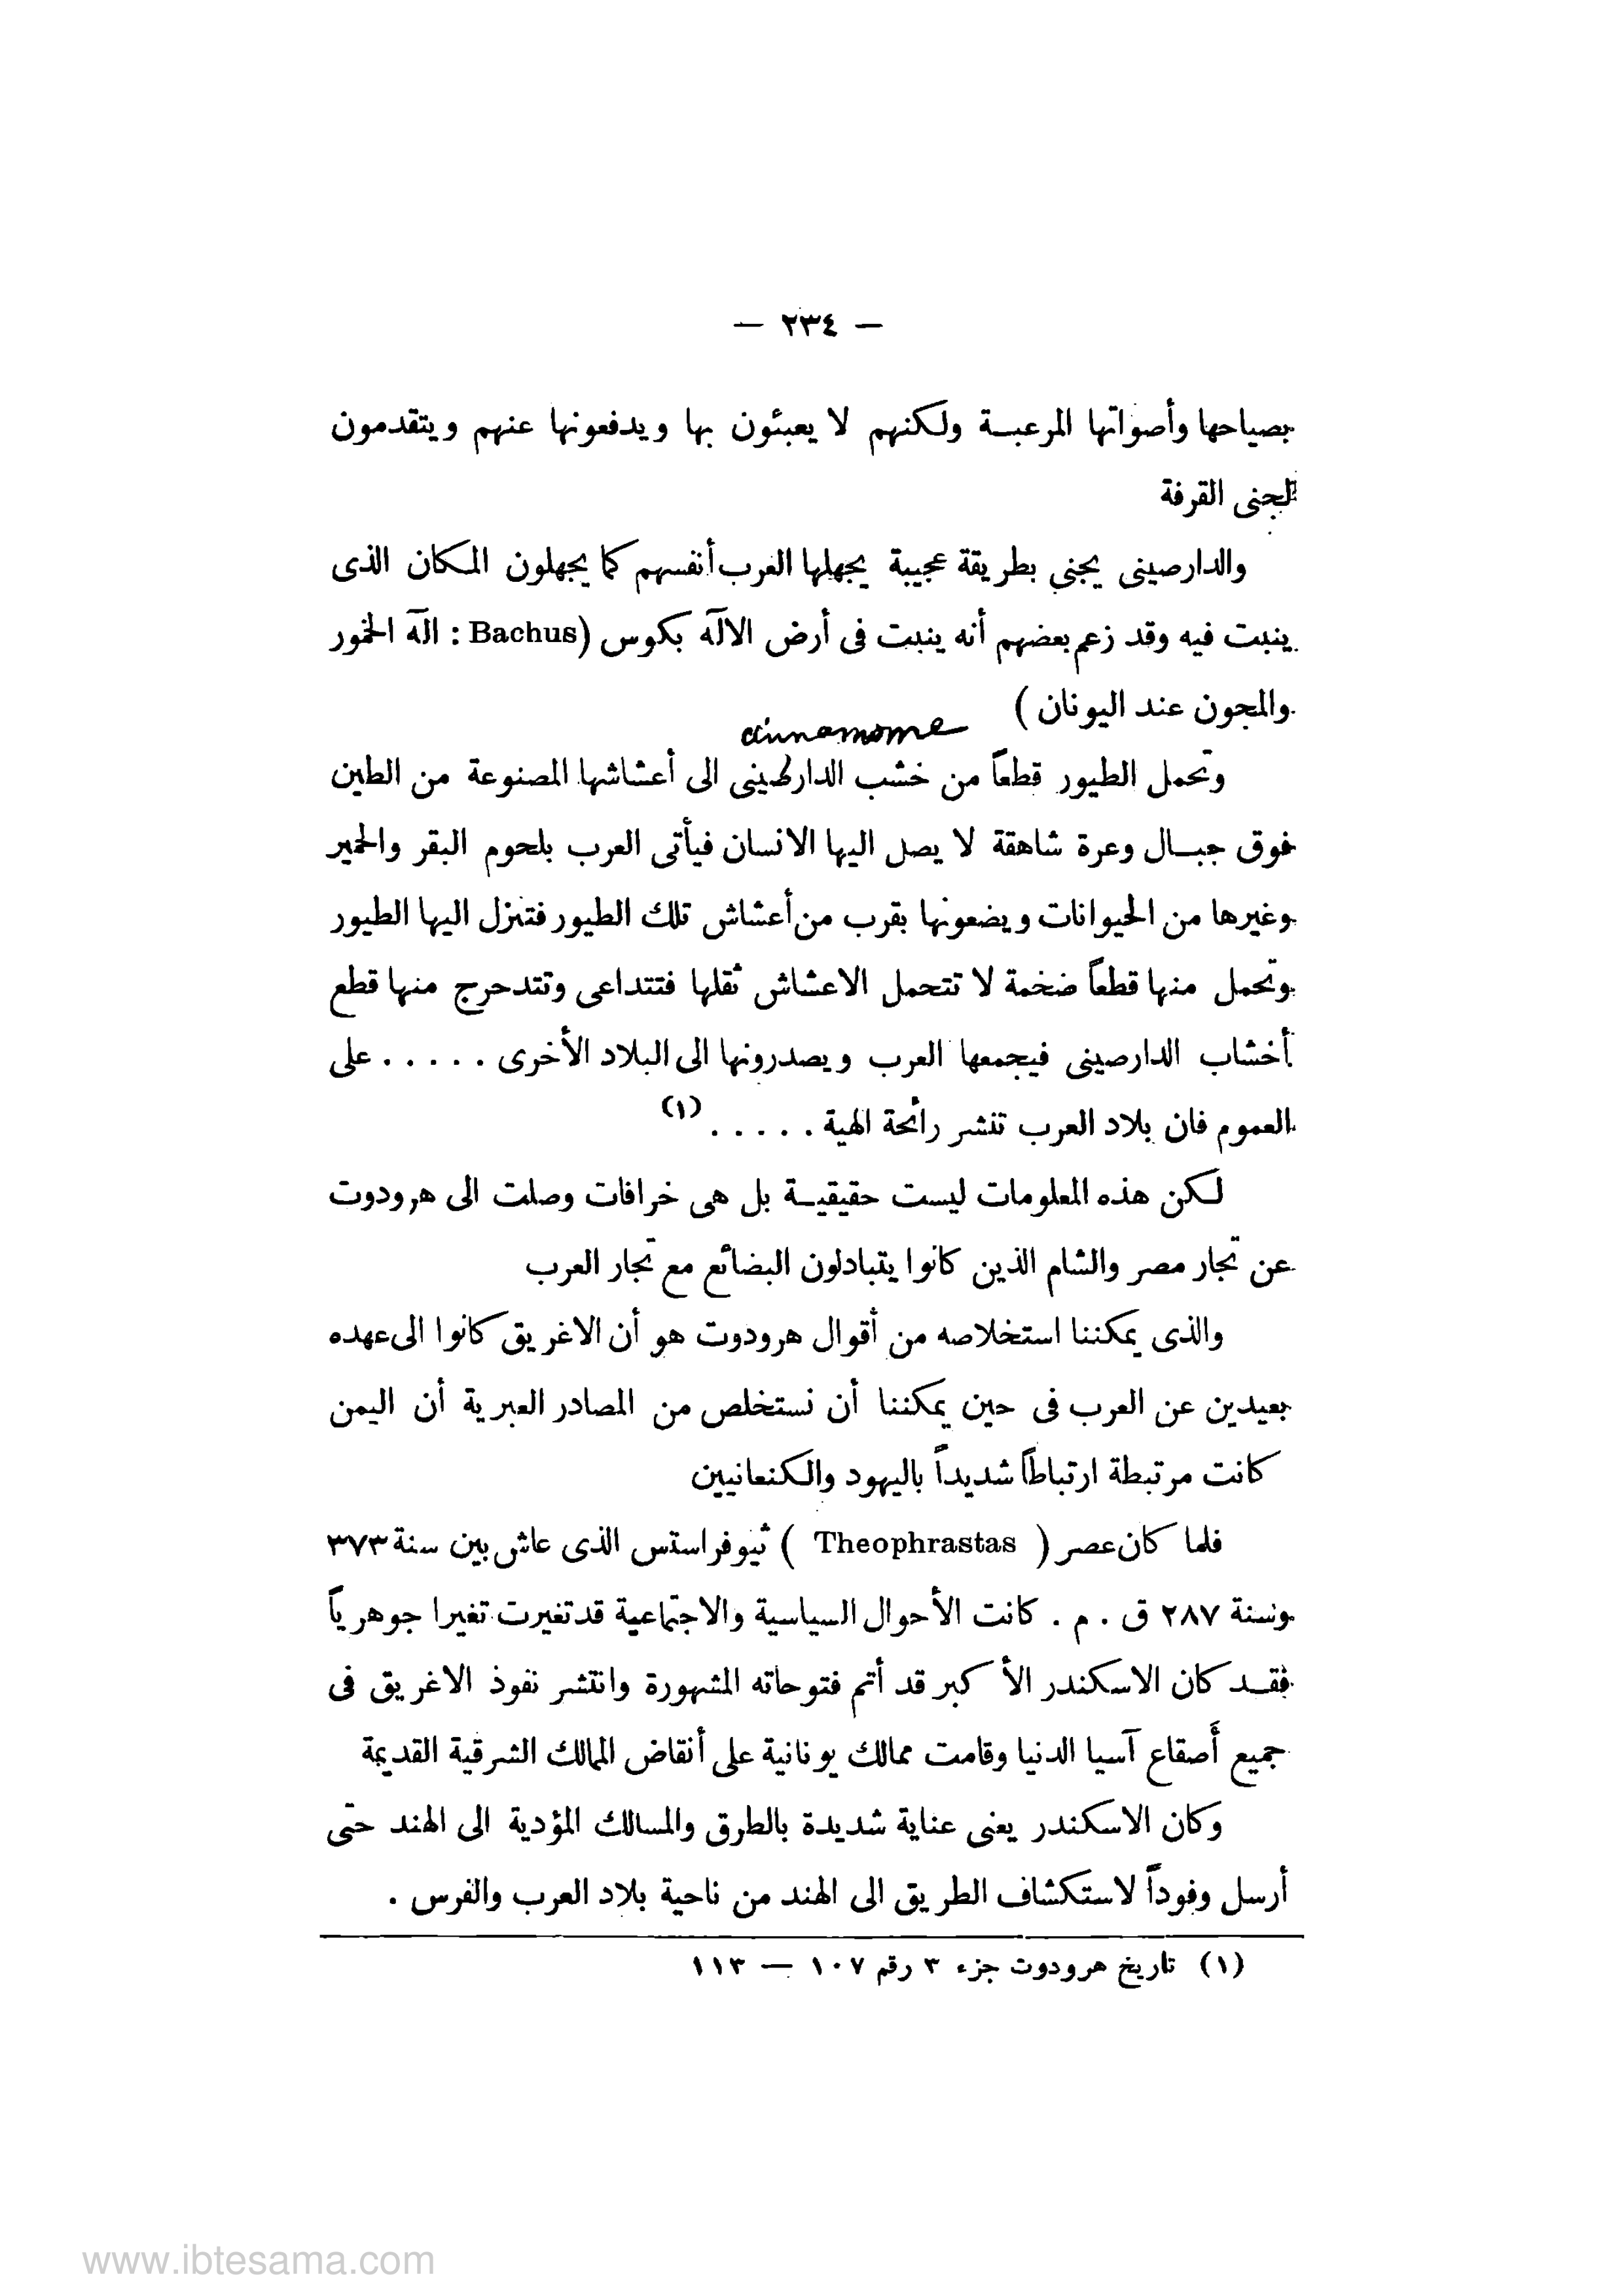 — ٢٣٤ —
بصياحها وأصواتها المرعبة ولكنهم لا يعبئون بها ويدفعونها عنهم ويتقدمون
لجنى القرفة
والدارصينى يجنى بطريقة عجيبة يجهلها العرب أنفسهم كما يجهلون المكان الذى
ينبت فيه وقد زعم بعضهم أنه ينبت فى أرض الالٓه بكوس (Bachus : الٓه الخمور
والمجون عند اليونان )
cinnamome
وتحمل الطيور قطعاً من خشب الدارصينى الى أعشاشها المصنوعة من الطين
فوق جبال وعرة شاهقة لا يصل اليها الانسان فيأتى العرب بلحوم البقر والحمير
وغيرها من الحيوانات ويضعونها بقرب من أعشاش تلك الطيور فتنزل اليها الطيور
وتحمل منها قطعاً ضخمة لا تتحمل الاعشاش ثقلها فتتداعى وتتدحرج منها قطع
أخشاب الدارصينى فيجمعها العرب ويصدرونها الى البلاد الأخرى . . . . . على
العموم فان بلاد العرب تنشر رائحة الهية . . . . . (١)
لكن هذه المعلومات ليست حقيقية بل هى خرافات وصلت الى هرودوت
عن تجار مصر والشام الذين كانوا يتبادلون البضائع مع تجار العرب
والذى يمكننا استخلاصه من أقوال هرودوت هو أن الاغريق كانوا الى عهده
بعيدين عن العرب فى حين يمكننا أن نستخلص من المصادر العبرية أن اليمن
كانت مرتبطة ارتباطاً شديداً باليهود والكنعانيين
فلما كان عصر ( Theophrastas ) ثيوفراستس الذى عاش بين سنة ٣٧٣
وسنة ٢٨٧ ق . م . كانت الأحوال السياسية والاجتماعية قد تغيرت تغيرا جوهرياً
فقد كان الاسكندر الأكبر قد أتم فتوحاته المشهورة وانتشر نفوذ الاغريق فى
جميع أصقاع آسيا الدنيا وقامت ممالك يونانية على أنقاض الممالك الشرقية القديمة
وكان الاسكندر يعنى عناية شديدة بالطرق والمسالك المؤدية الى الهند حتى
أرسل وفوداً لاستكشاف الطريق الى الهند من ناحية بلاد العرب والفرس .
(١) تاريخ هرودوت جزء ٣ رقم ١٠٧ — ١١٣
www.ibtesama.com